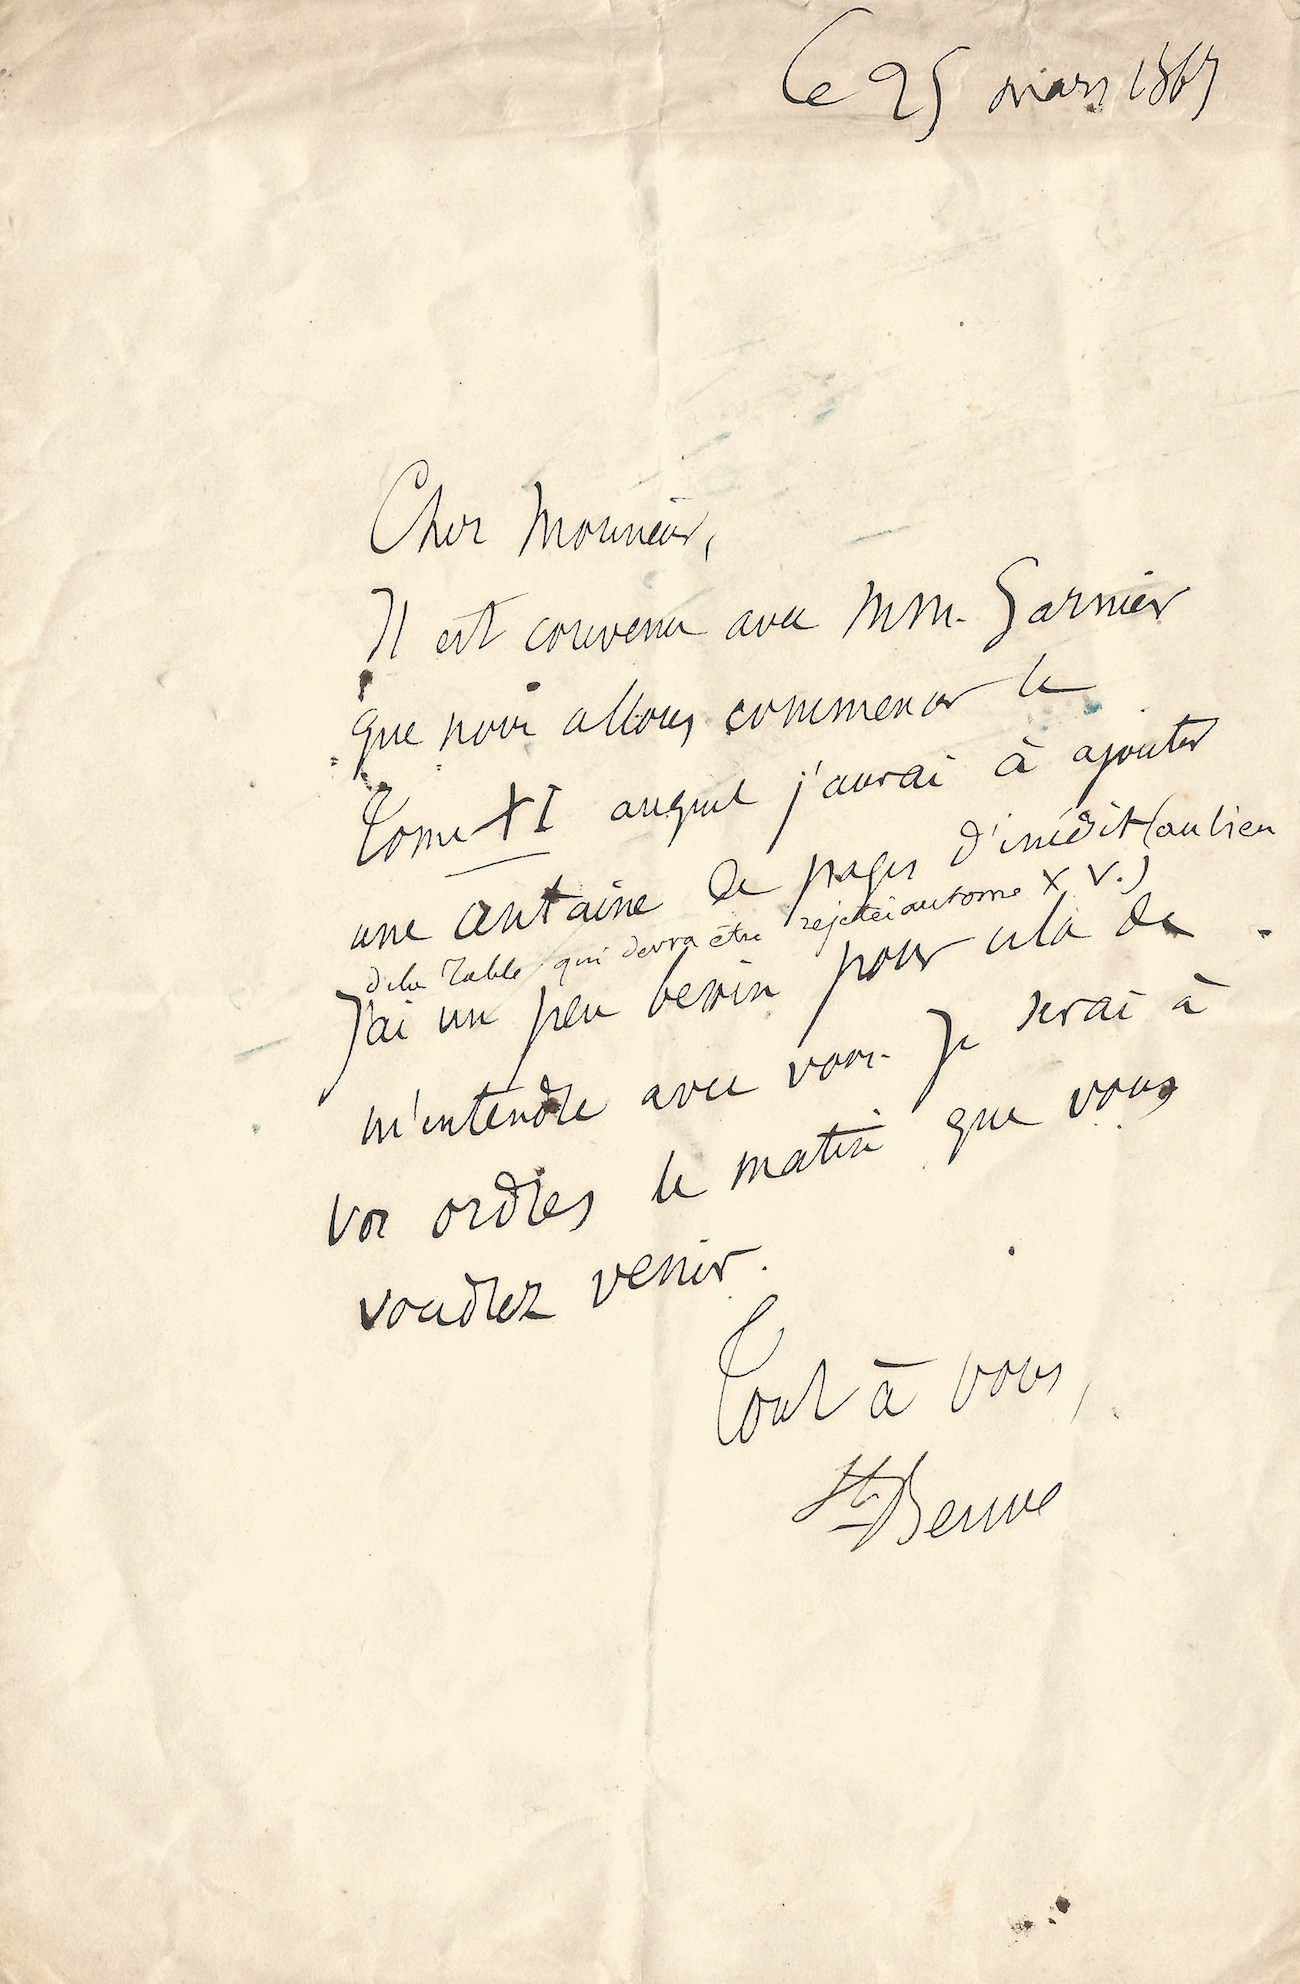 Ce 25 mars 1867
Cher Monsieur,
Il est convenu avec MM. Garnier
que nous allons commencer le
tome XI auquel j'aurai à ajouter
une centaine de pages d'inédit (au lieu
de la Table qui devra être rejetée au tome XV.)
J'ai un peu besoin pour cela de
m'entendre avec vous. Je serai à
vos ordres le matin que vous
voudrez venir.
Tout à vous,
Ste-Beuve